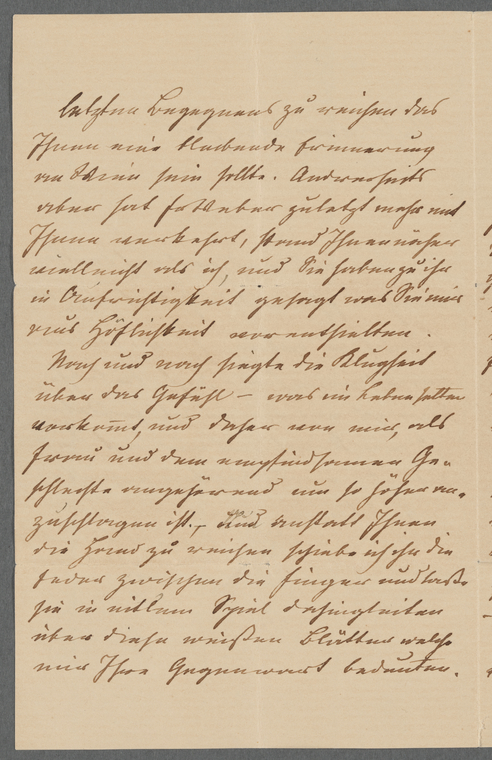 letzten Begegnens zu reichen das
Ihnen eine bleibende Erinnerung
an Wien sein sollte. Andrerseits
aber hat Fr Weber zuletzt mehr mit
Ihnen verkehrt, stand Ihnen näher
vielleicht als ich, und Sie haben zu ihr
in Aufrichtigkeit gesagt was Sie mir
aus Höflichkeit vorenthielten.
Nach und nach siegte die Klugheit
über das Gefühl – was im Leben selten
vorkom̅t, und daher von mir, als
Frau und dem empfindsamen Ge-
schlechte angehörend um so höher an-
zuschlagen ist. – Und anstatt Ihnen
die Hand zu reichen schiebe ich ihr die
Feder zwischen die Finger und lasse
sie in eitlem Spiel dahingleiten
über diese weißen Blätter welche
mir Ihre Gegenwart bedeuten.